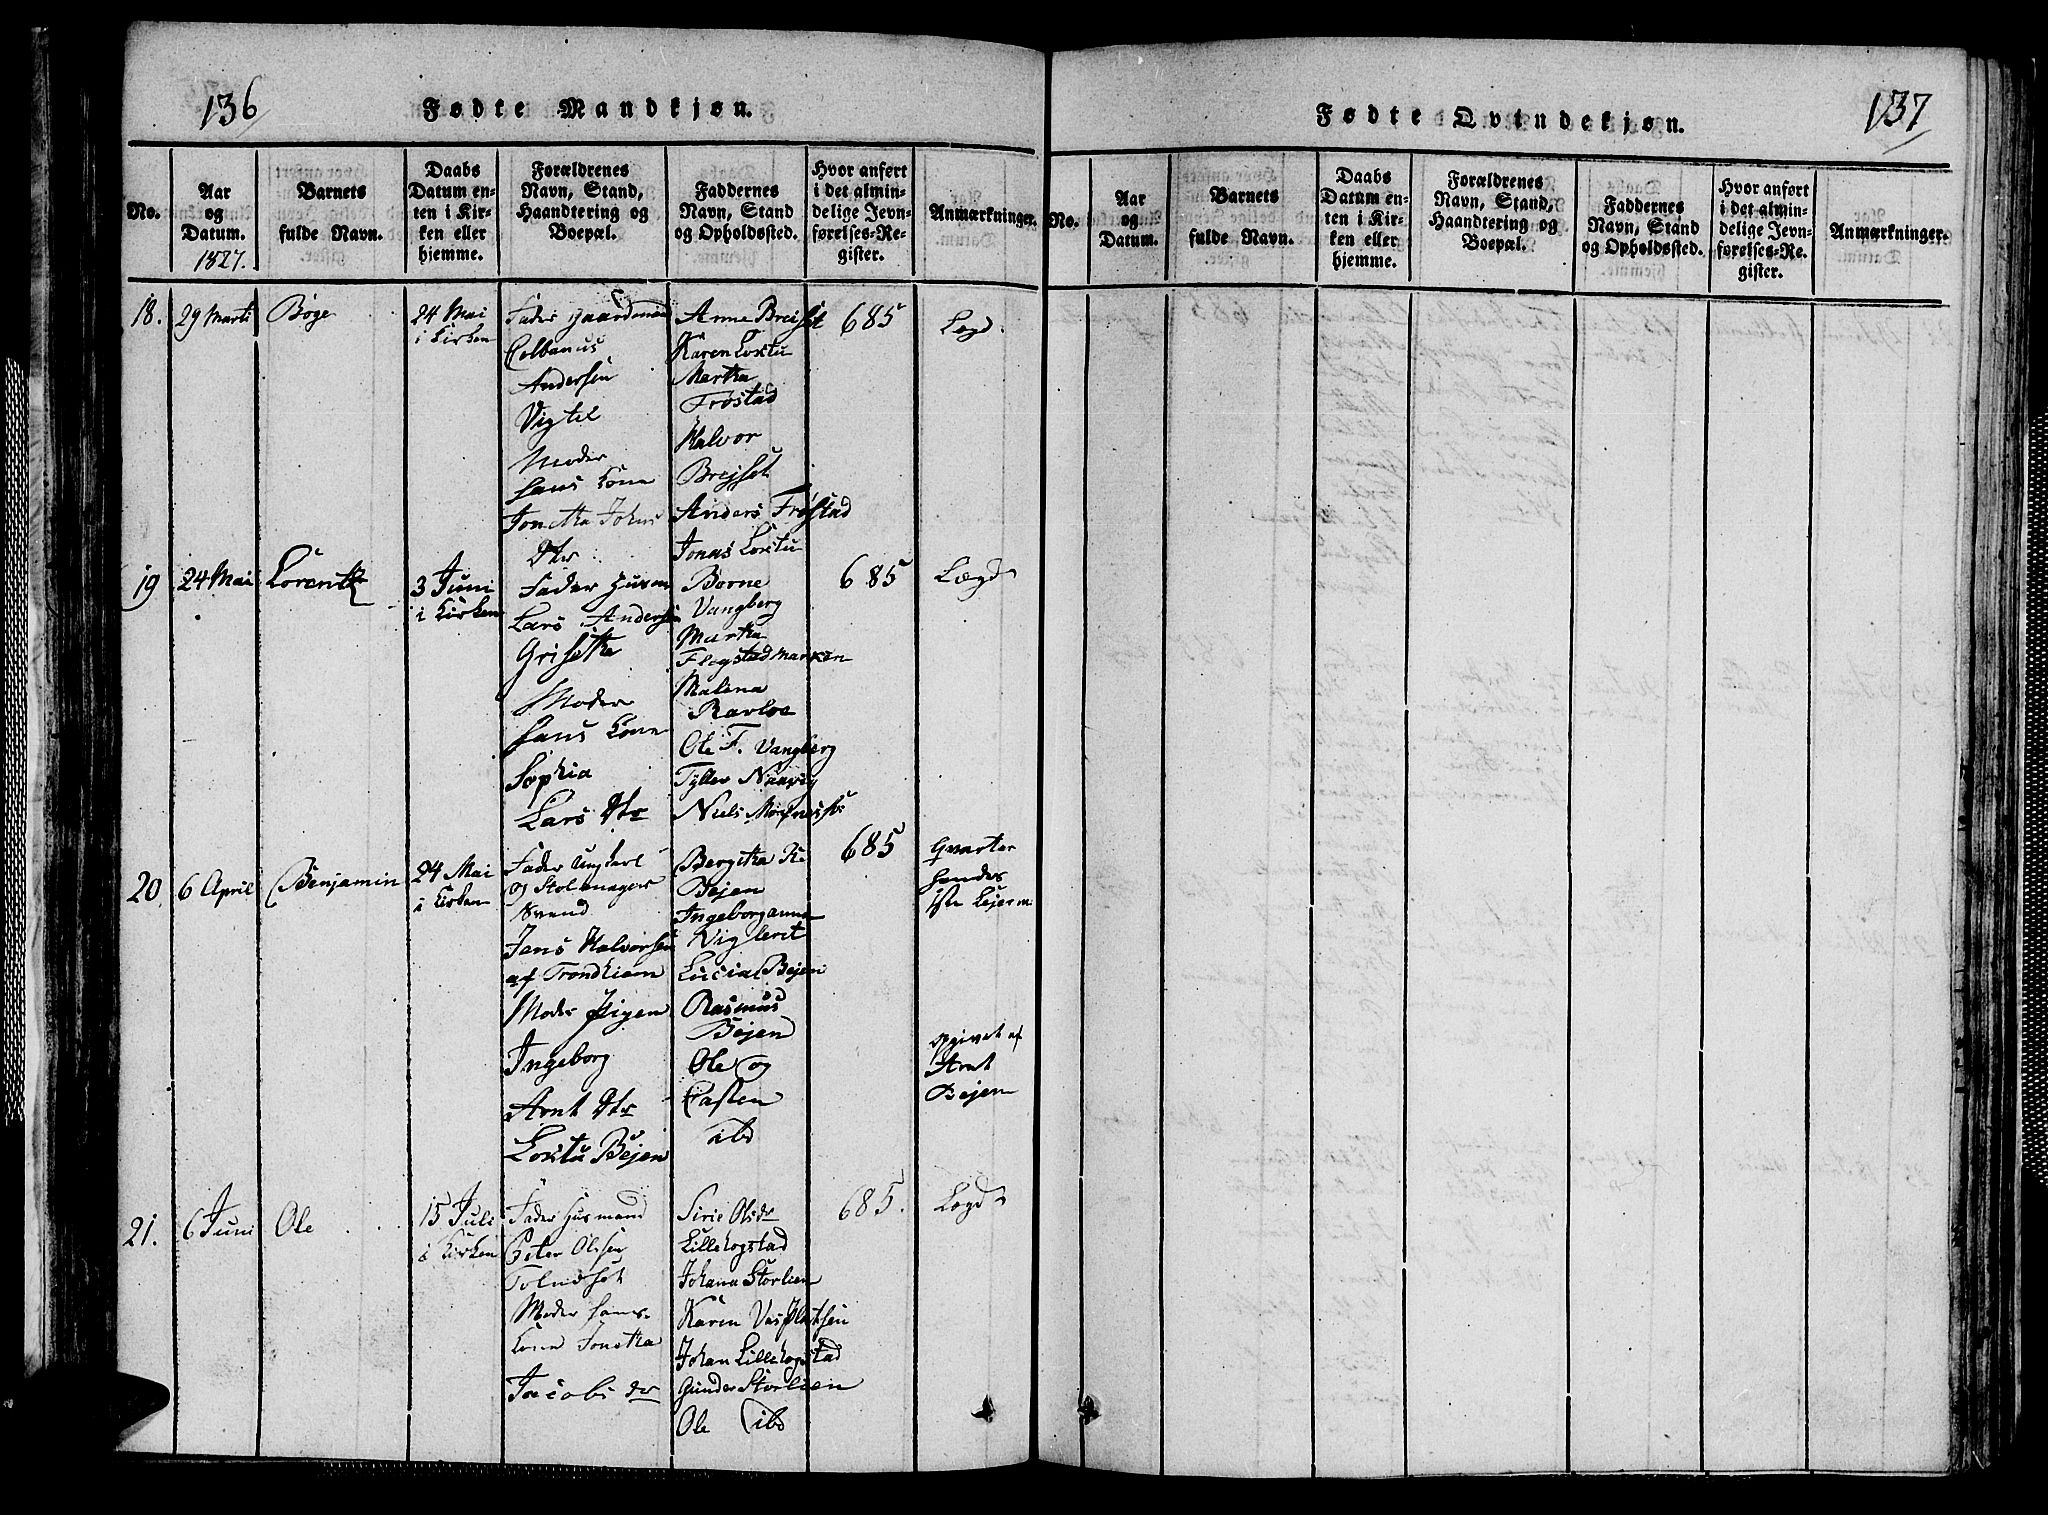 136
Fødte Mandkjøn.
No.
Aar
og
Datum.
1827.
Barnets
fulde Navn.
Daabs
Datum en-
ten i Kir-
ken eller
hjemme.
Forældrenes
Navn, Stand,
Haandtering og
Boepæl.
Faddernes
Navn, Stand
og Opholdssted.
Hvor anført
i det almin-
delige Jevn-
førelses-Re-
gister.
Anmærkninger.
18.
29 Marti
Børge
24 Mai
i Kirken
Fader Gaardmand
Colbanus
Andersen
Vigtel
Moder
hans Kone
Jonetha Johns
Dtr
Anne Brejset
Karen Loxtu
Martha
Frøstad
Halvor
Brejset
Anders Frøstad
Jonas Loxtu
685
Lægd.
19
24 Mai
Lorentz
3 Juni
i Kirken
Fader Husm
Lars Andersen
Moder
hans Kone
Sophia
Lars Dtr
Vangberg
Martha
Flegstadmarken
Malena
Ravloe
Ole F. Vangberg
685
Lægd
20
6 April
Benjamin
24 Mai
i Kirken
Fader Ungkarl
og Stolemager
Svend
Jens Halvorsen
af Trondhiem
Moder Pigen
Ingeborg
Arnt Dtr
Loxtu Bejen
Bejen
Ingeborganna
Lucia Bejen
Rasmus
Bejen
Ole og
Casten
ibd
685
opgivet af
Arnt
Bejen
21.
6 Juni
Ole
15 Juli
i Kirken
Fader Husmand
Peter Olsen
Tolmdset
Moder hans
Kone Jonetha
Jacobs dr
Sirie Olsdr
Lillehogstad
Johana Storlien
Karen
Johan Lillehogstad
Gunder Storlien
Ole ibd
685.
Lægd
137
Fødte Qvindekjøn.
No.
Aar
og
Datum.
Barnets
fulde Navn.
Daabs
Datum en-
ten i Kir-
ken eller
hjemme.
Forældrenes
Navn, Stand,
Haandtering og
Boepæl.
Faddernes
Navn, Stand
og Opholdssted.
Hvor anført
i det almin-
delige Jevn-
førelses-Re-
gister.
Anmærkninger.